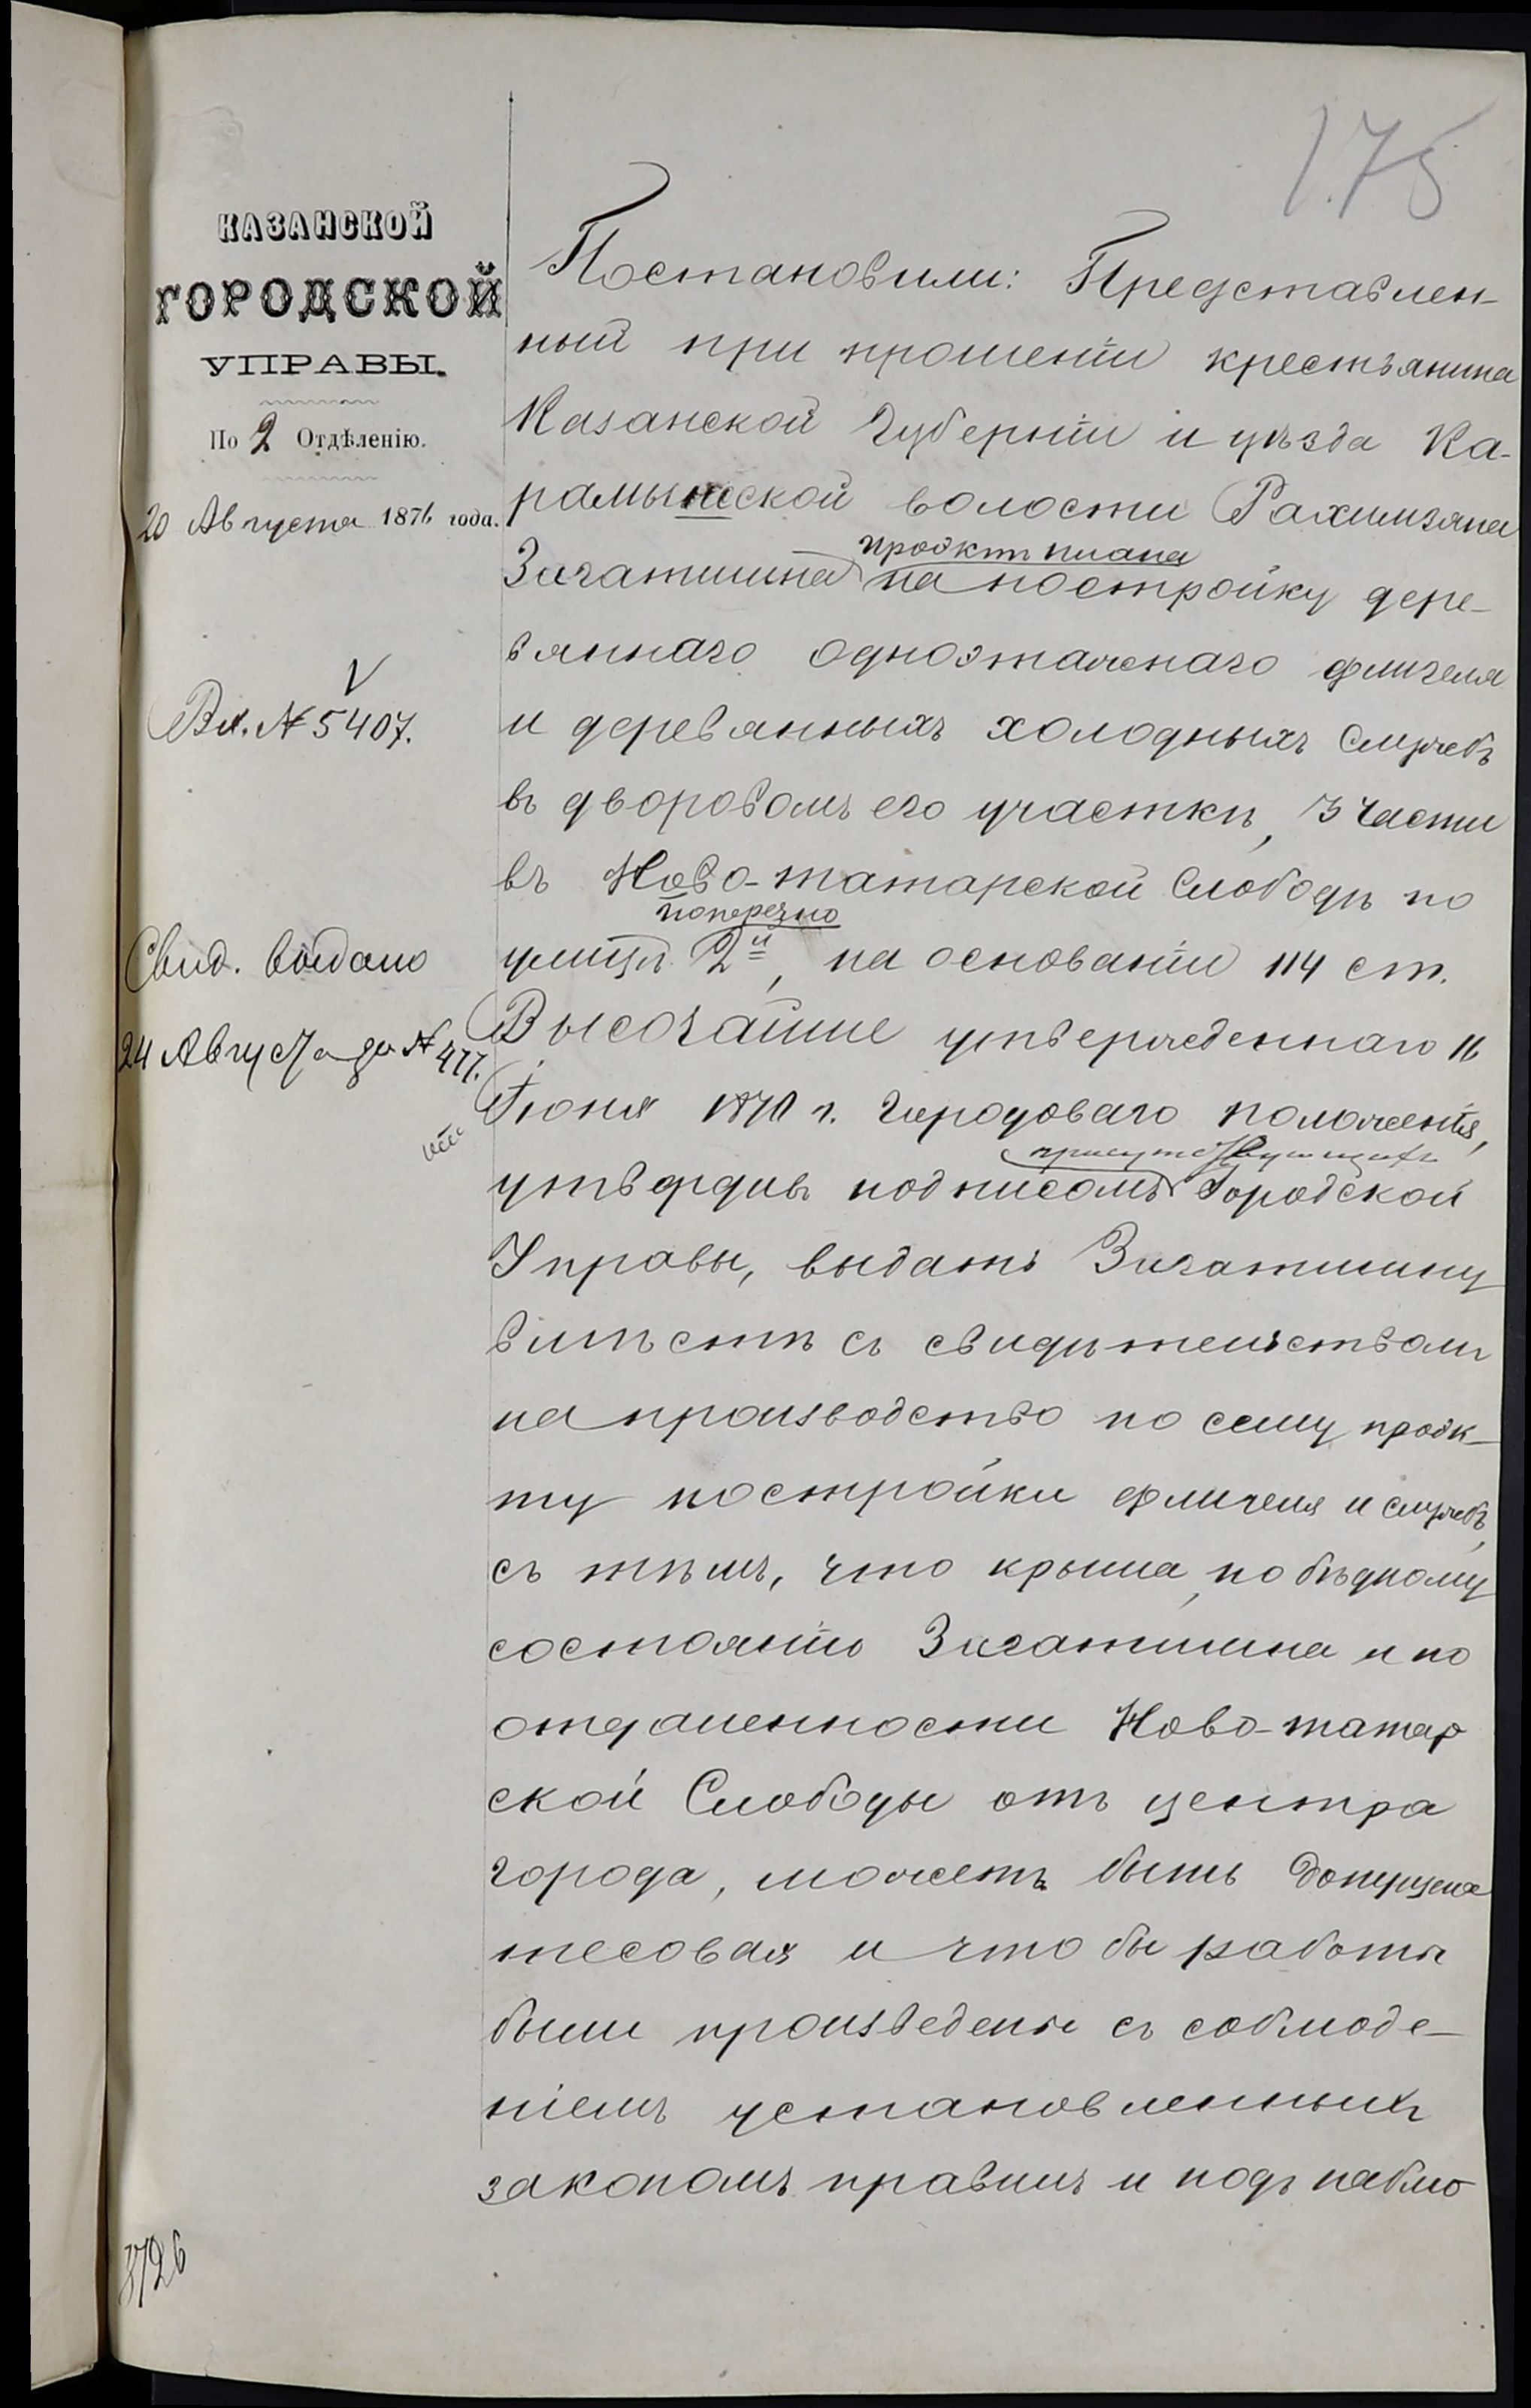 175
КАЗАНСКОЙ
ГОРОДСКОЙ
УПРАВЫ.
По 2 Отдѣленію.
20 Августа 1876 года.
Вх. № 5407.
Свид. выдано
24 Августа за № 477.
Постановили: Представлен-
ный при прошеніи крестьянина
Казанской Губерніи и уѣзда Ка-
рамышской волости Рахимзяна
проэктъ плана
Загатишина на постройку дере-
вяннаго одноэтажнаго флигеля
и деревянныхъ холодныхъ службъ
въ дворовомъ его участкѣ, 3 части
въ Ново-татарской Слободѣ по
поперечно
улицѣ 2й, на основаніи 114 ст.
Высочайше утвержденнаго 16
Іюня 1870 г. Городоваго положенія,
присутствующихъ
утвердивъ подписомъ Городской
Управы, выдать Загатишину
вмѣстѣ съ свидѣтельствомъ
на производство по сему проэк-
ту постройки флигеля и службъ,
съ тѣмъ, что крыша, по бѣдному
состоянію Загатишина и по
отдаленности Ново-татар
ской Слободы отъ центра
города, можетъ быть допущена
тесовая и что бы работы
были произведены съ соблюде-
ніемъ установленныхъ
закономъ правилъ и подъ наблю
8726